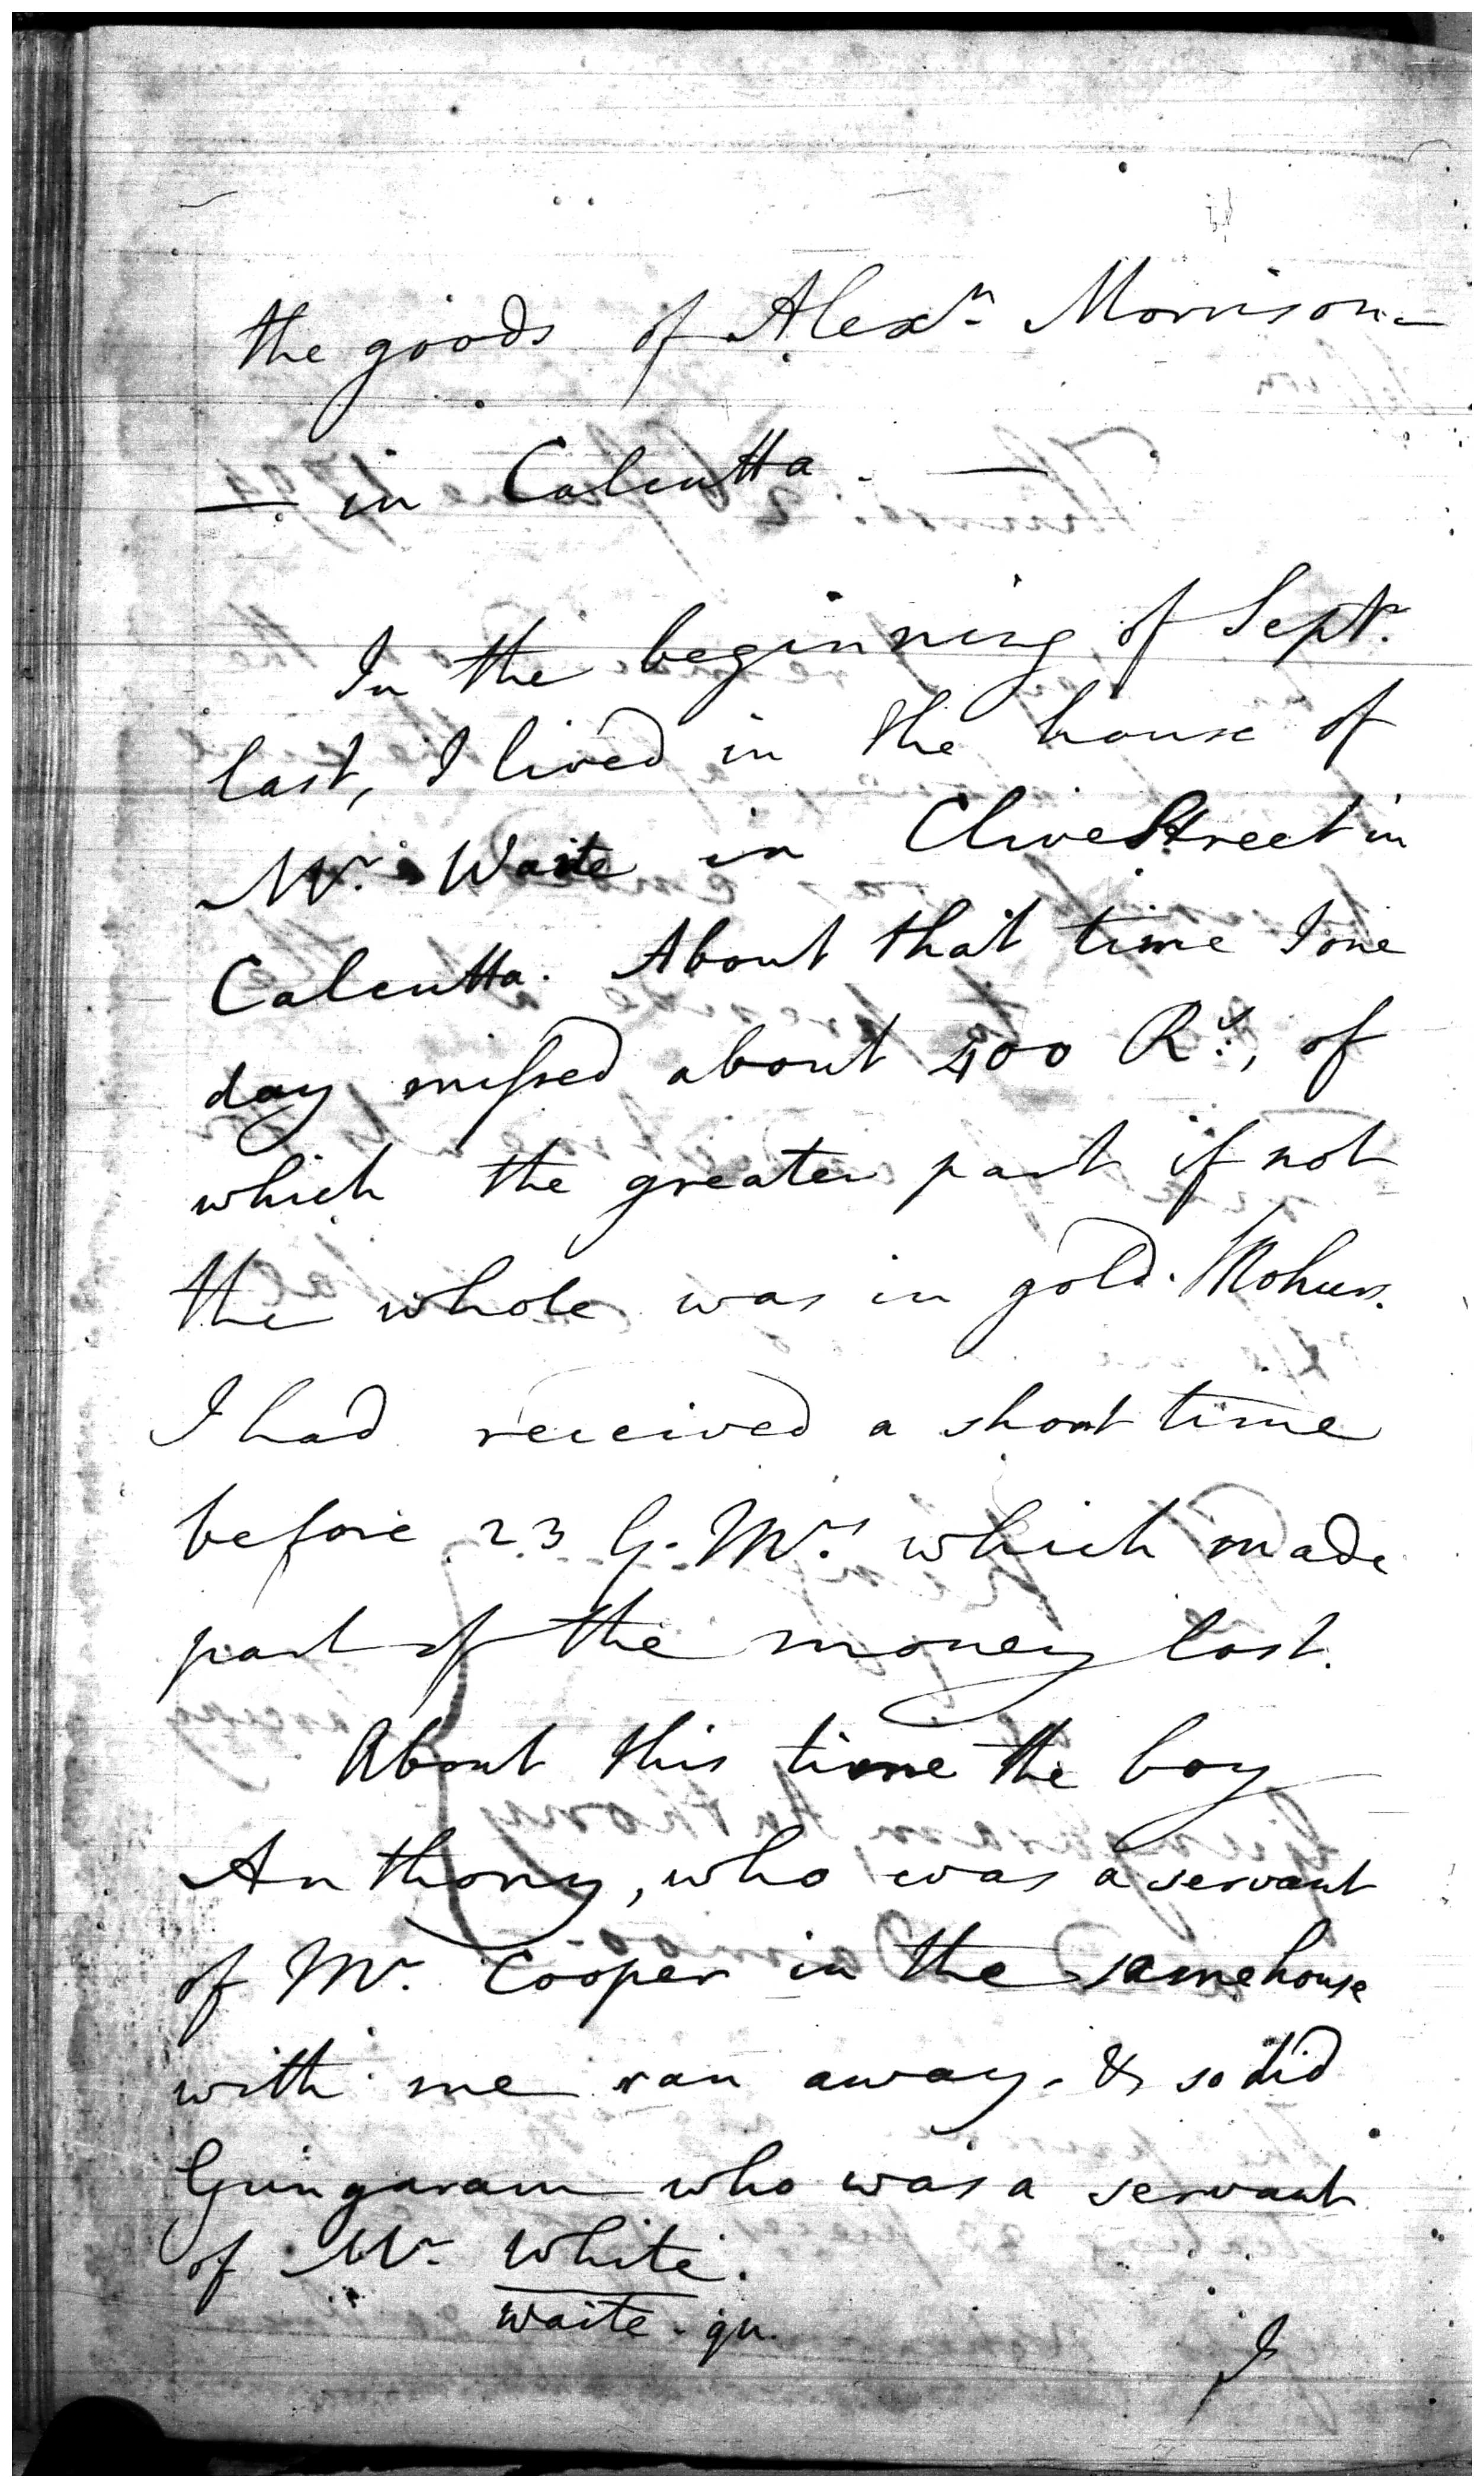 the goods of Alexr. Morrison
— in Calcutta. —
In the beginning of Septr.
last, I lived in the house of
Mr. Waite in Clive Street in
Calcutta. About that time I one
day missed about 400 Rs., of
which the greater part if not
the whole was in gold Mohurs.
I had received a short time
before 23 G. Mrs. which made
part of the money lost.
About this time the boy
Anthony, who was a servant
of Mr. Cooper in the same house
with me ran away. & so did
Gungaram who was a servant
of Mr. White.
Waite. qu.
I